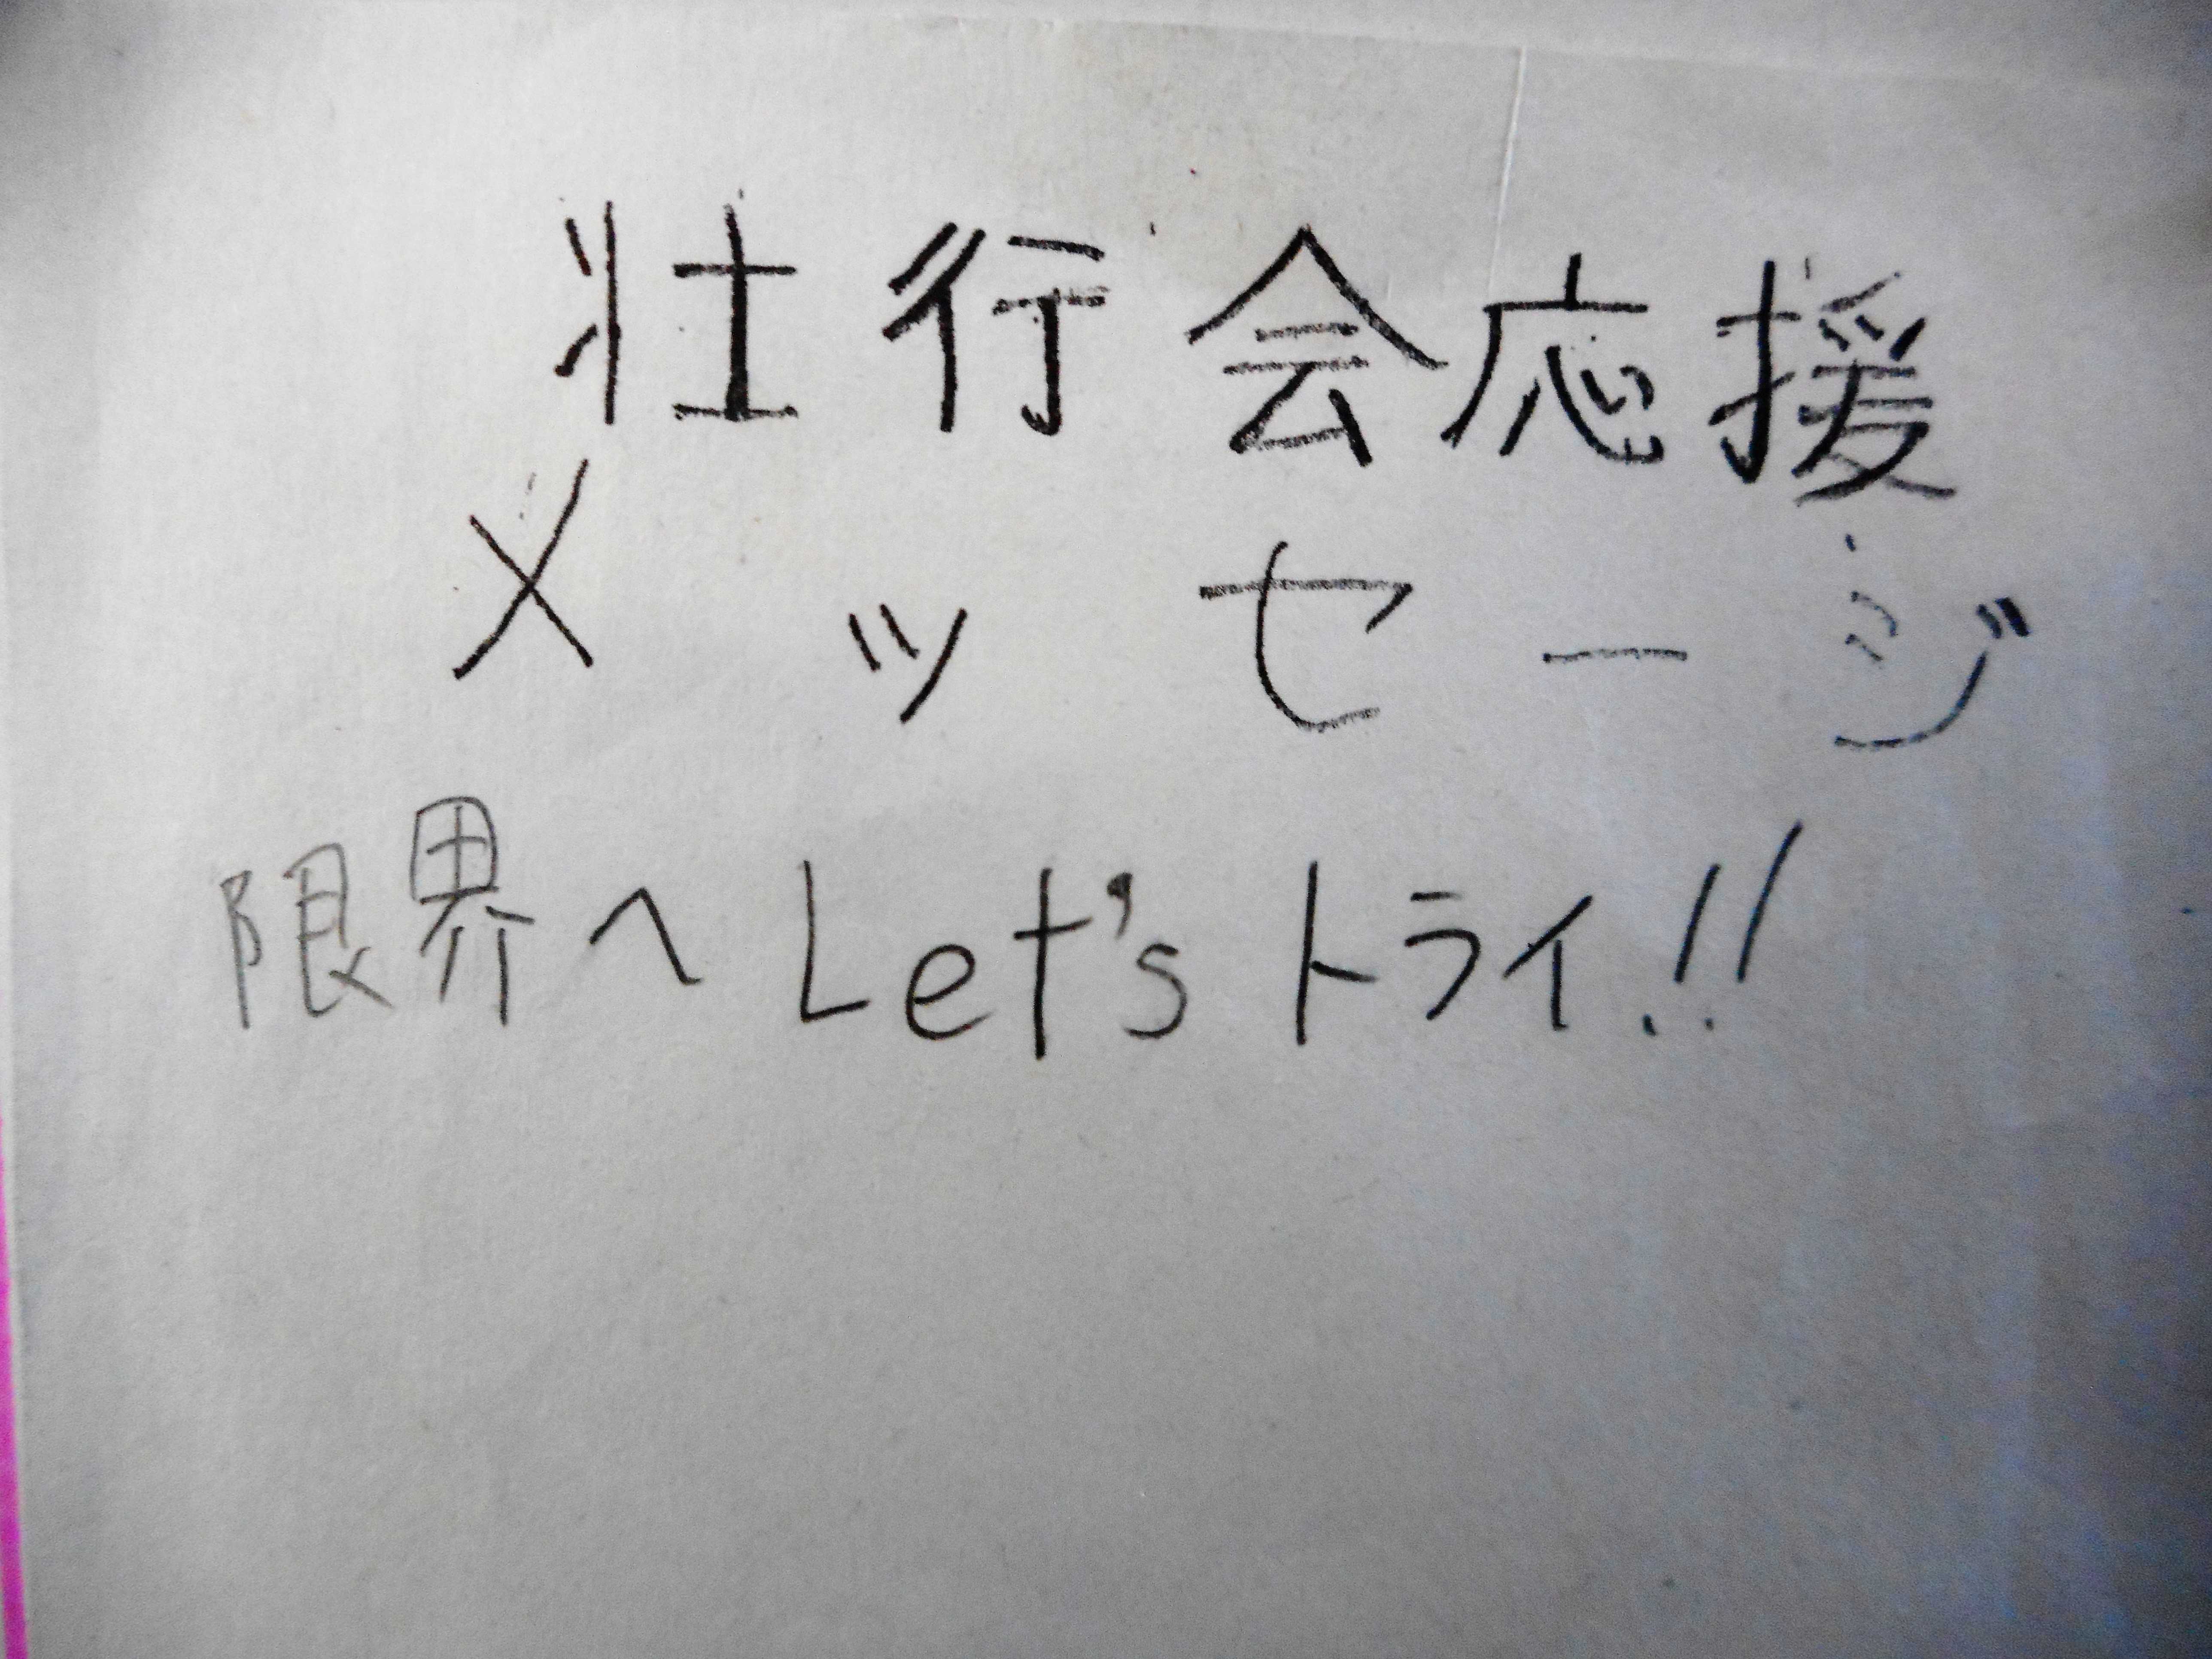 壮行会応援
メッセージ
限界へ Let's トライ!!